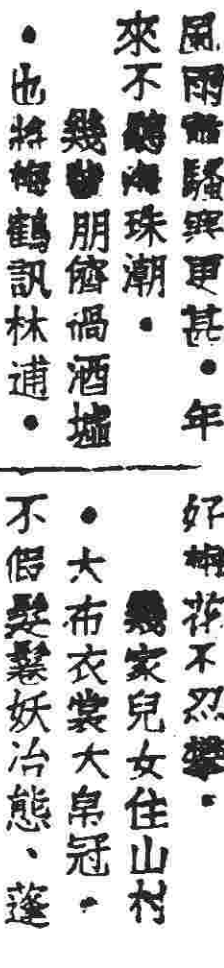 風雨
騷興更甚。年
來不聽
珠潮。
幾
朋儕過酒墟
。也將梅鶴訊林逋。
好梅花不忍攀。
幾家兒女住山村
。大布衣裳大帛冠。
不假髮鬟妖冶態、蓬